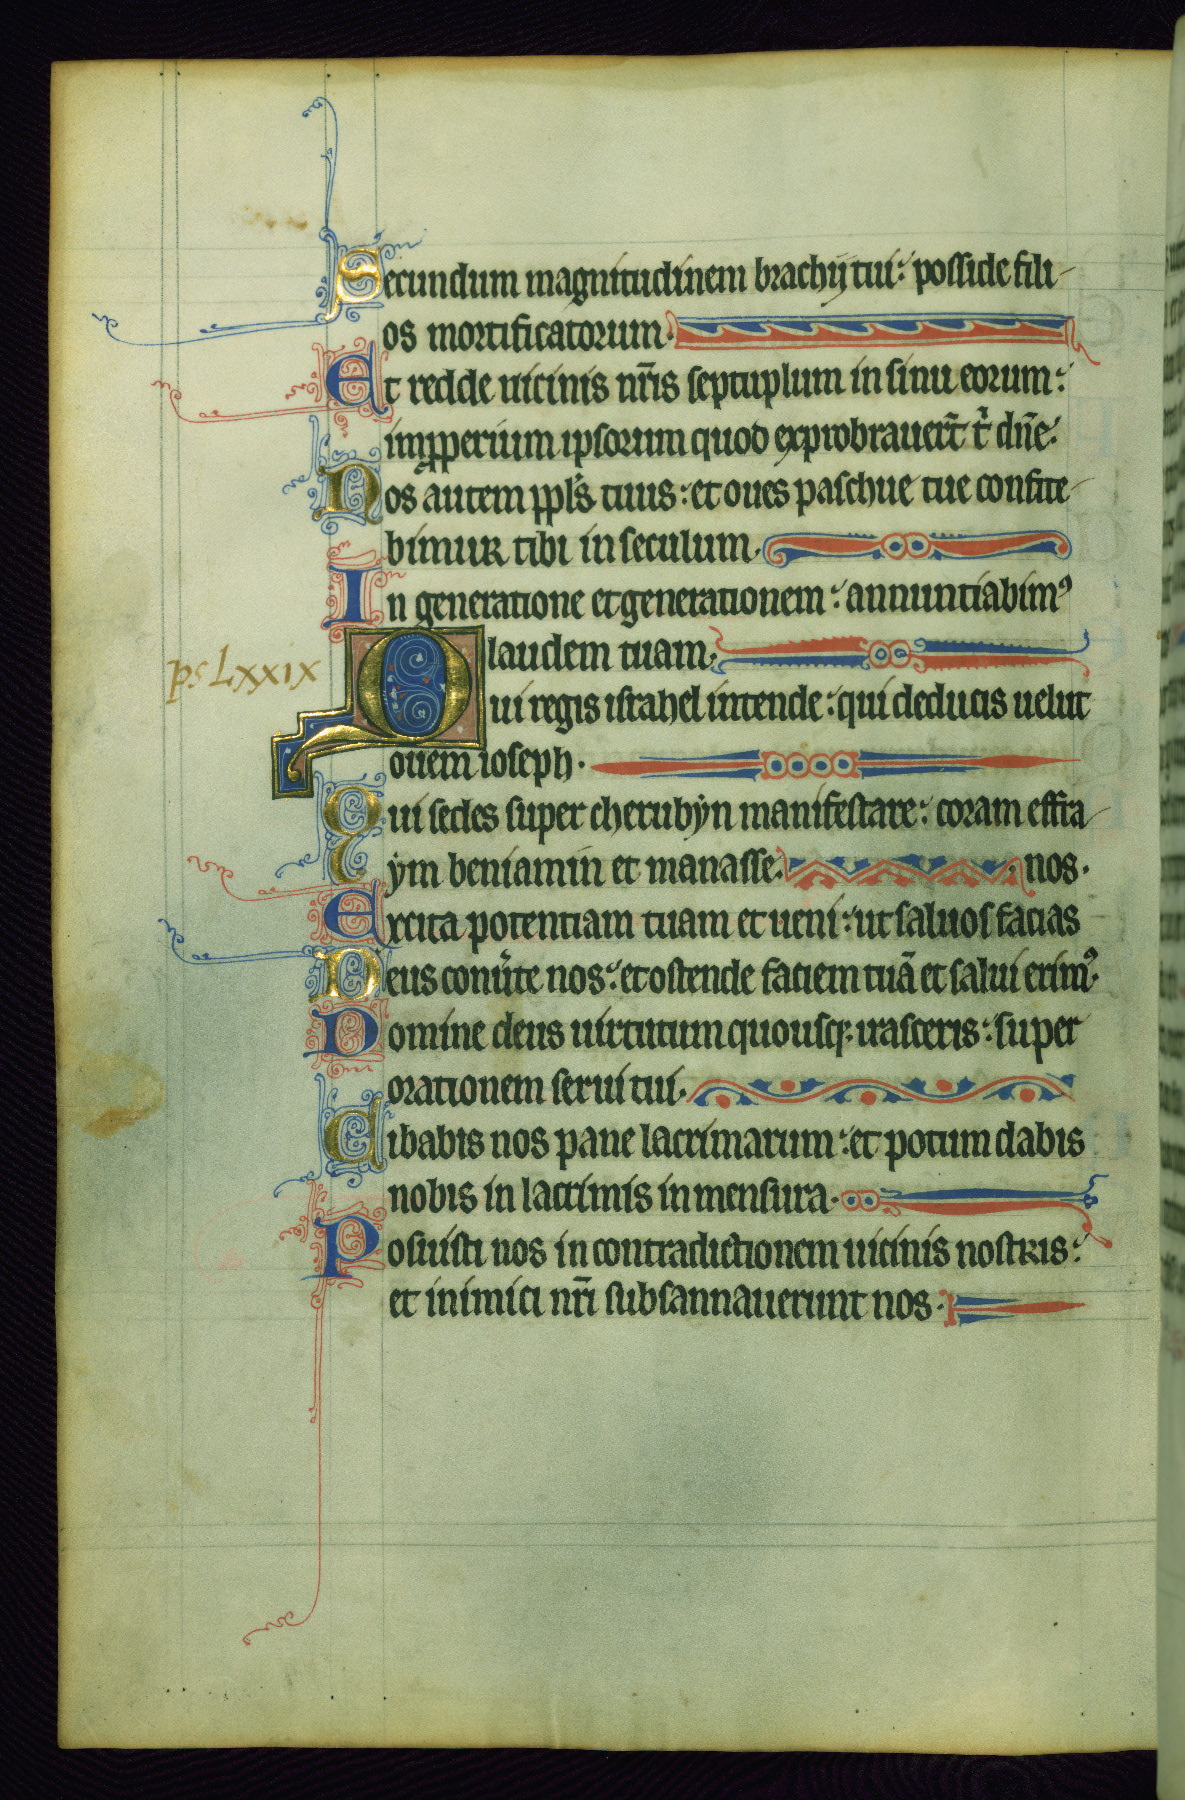 Secundum magnitudinem brachij tui: posside fili-
os mortificatorum.
Et redde uicinis nr̄is septuplum in sinu eorum:
imꝓperium ipsorum quod exprobrauer̄t t̄ dn̄e.
Nos autem ppl̄s tuus: et oues paschue tue confite-
bimur tibi in seculum.
In generatione et generationem: annuntiabimꝰ
laudem tuam.
ps Lxxix
Qui regis israhel intende: qui deducis uelut
ouem ioseph.
Qui sedes super cherubyn manifestare: coram effra-
ym beniamin et manasse. nos.
Excita potentiam tuam et ueni: ut saluos facias
Deus conu̾te nos: et ostende faciem tuā et salui erimꝰ.
Domine deus uirtutum quousq; irasceris: super
orationem serui tui.
Cibabis nos pane lacrimarum: et potum dabis
nobis in lacrimis in mensura.
Posuisti nos in contradictionem uicinis nostris:
et inimici nr̄i subsannauerunt nos.